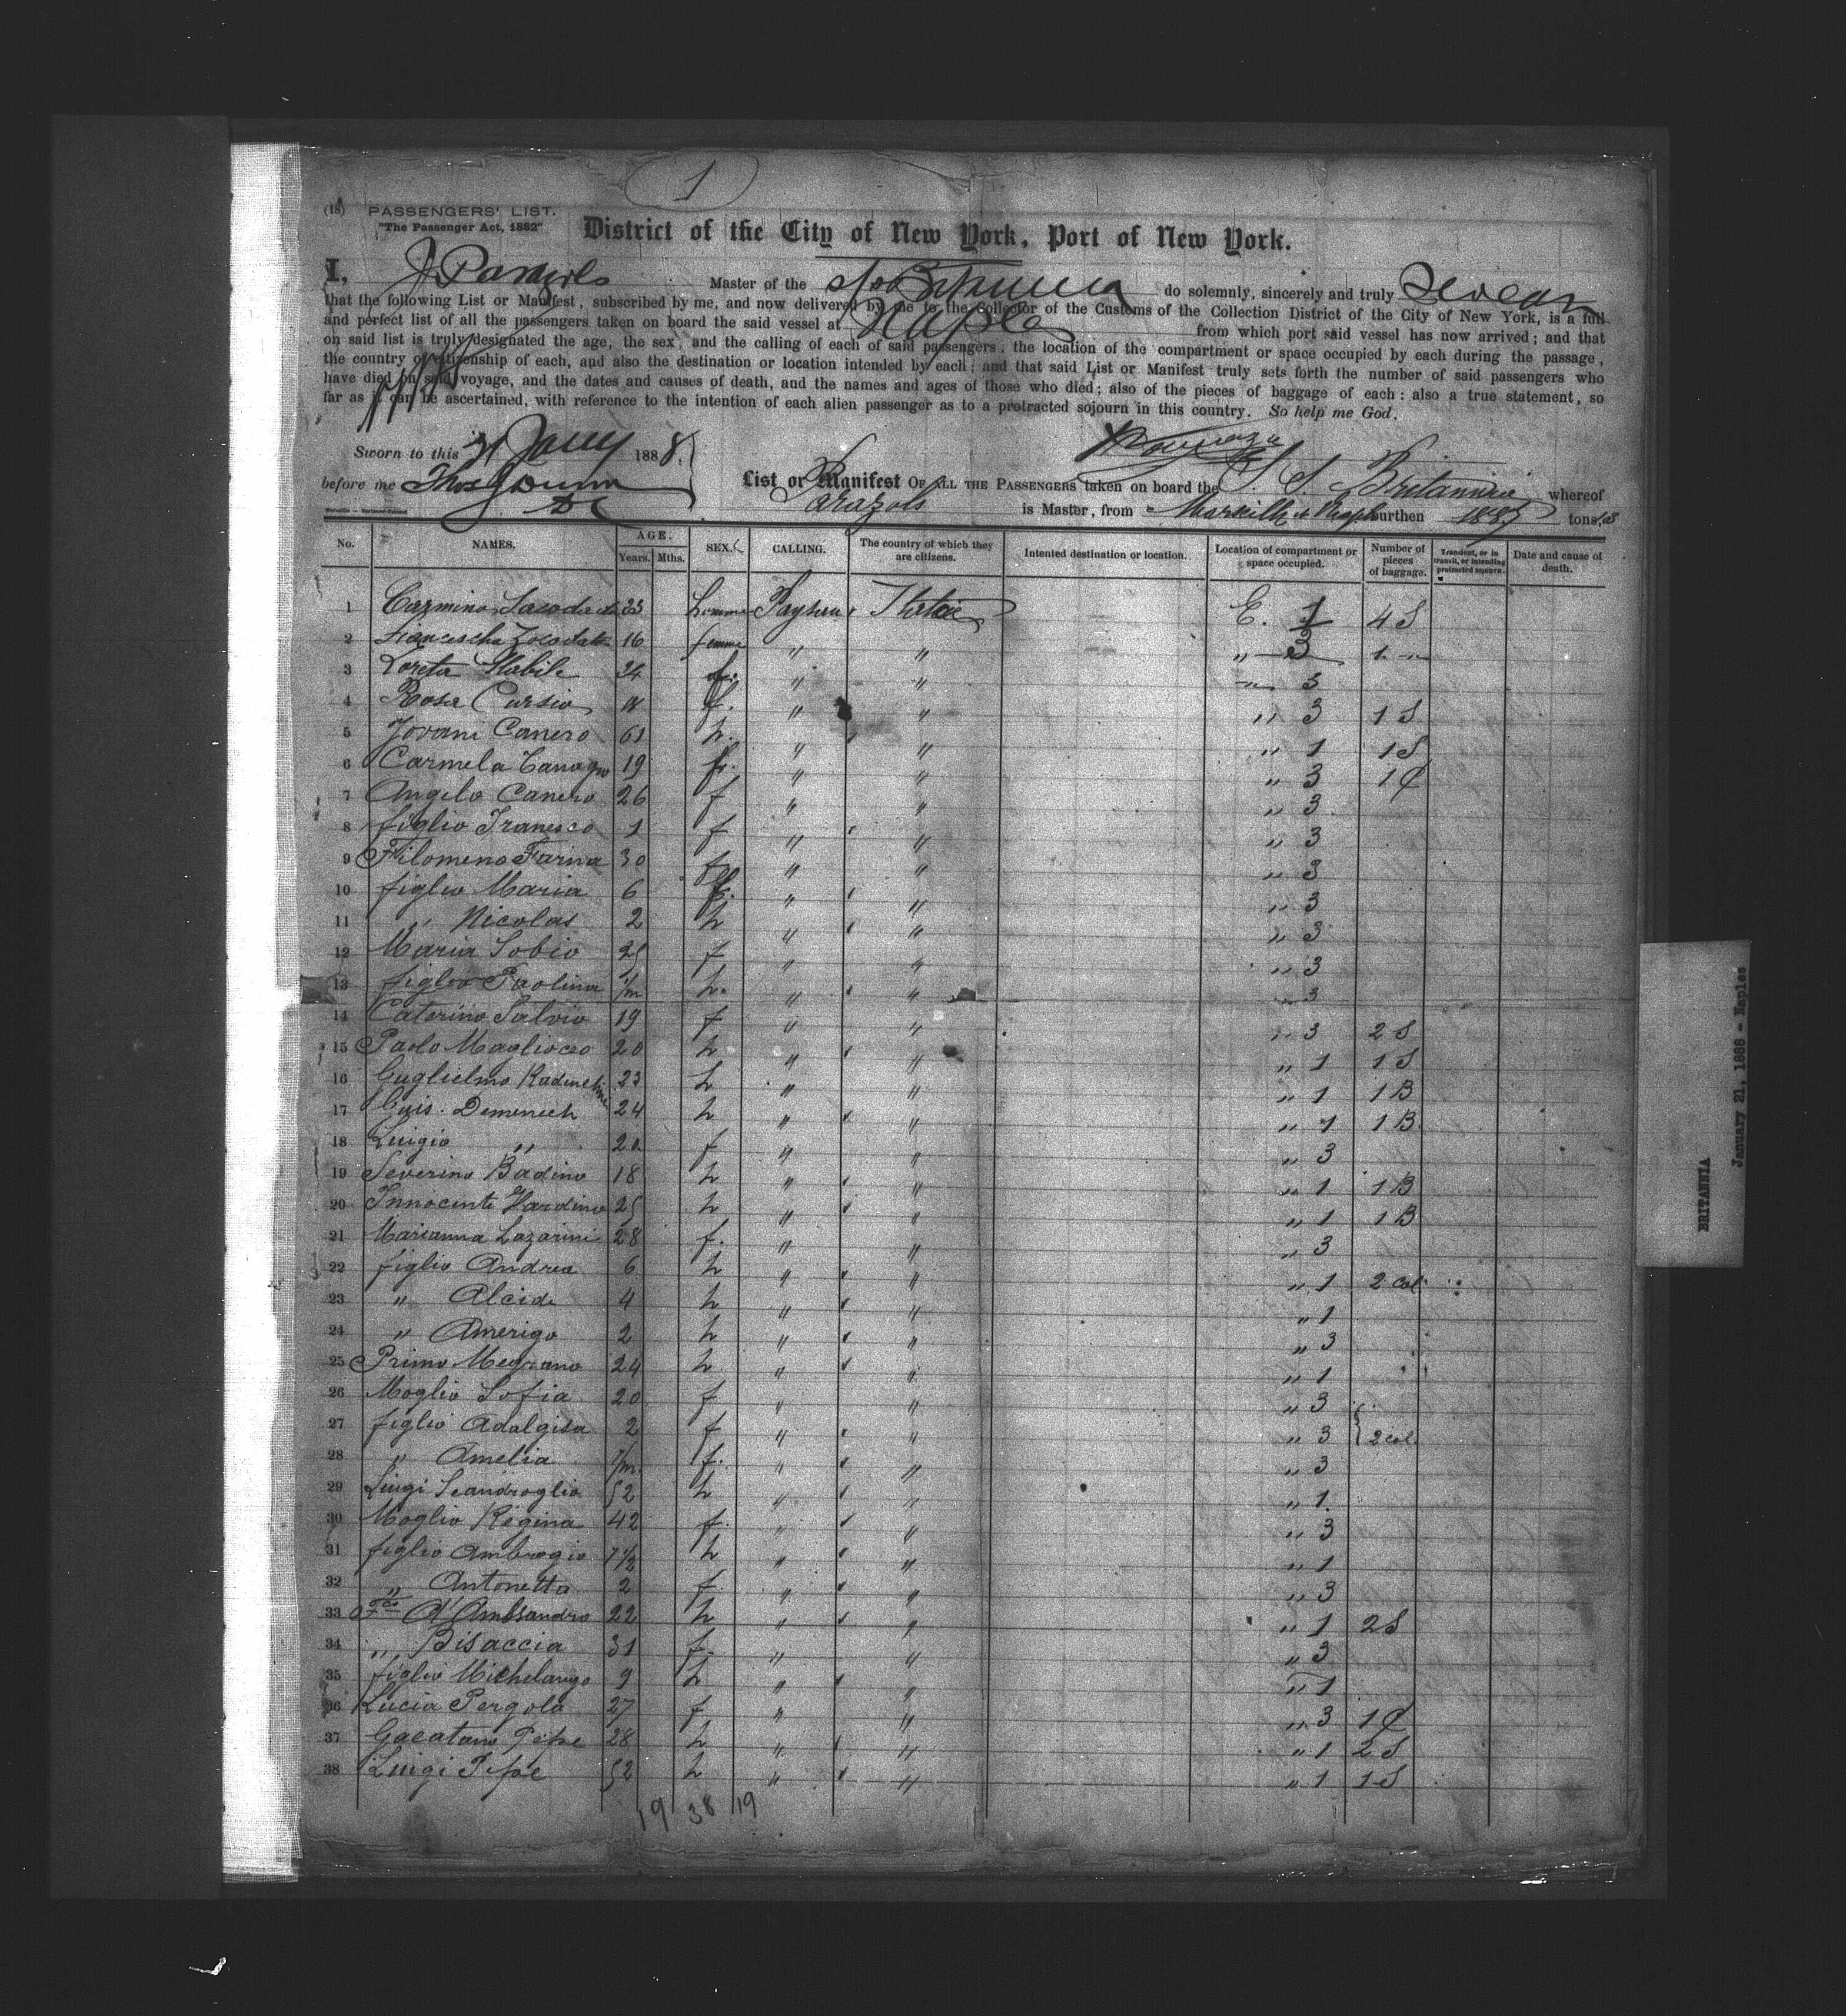 1
(18) PASSENGERS' LIST.
"The Passenger Act, 1882"
District of the City of New York, Port of New York.
I, J Parazols Master of the s/s Britannia do solemnly, sincerely and truly swear
that the following List or Manifest, subscribed by me, and now delivered by me to the Collector of the Customs of the Collection District of the City of New York, is a full
and perfect list of all the passengers taken on board the said vessel at Naples from which port said vessel has now arrived; and that
on said list is truly designated the age, the sex, and the calling of each of said passengers, the location of the compartment or space occupied by each during the passage,
the country of citizenship of each, and also the destination or location intended by each; and that said List or Manifest truly sets forth the number of said passengers who
have died on said voyage, and the dates and causes of death, and the names and ages of those who died; also of the pieces of baggage of each: also a true statement, so
far as it can be ascertained, with reference to the intention of each alien passenger as to a protracted sojourn in this country. So help me God.
Sworn to this 21 Jany 1888.
before me Thos J Dunn
List or Manifest OF ALL THE PASSENGERS taken on board the S. S. Britannia whereof
Parazols is Master, from Marseille & Naples burthen tons
No. NAMES. AGE. Years. Mths. SEX. CALLING. The country of which they are citizens. Intented destination or location. Location of compartment or space occupied. Number of pieces of baggage. Transient, or in transit, or intending protracted sojourn. Date and cause of death.
1 Carmino 33 homme E. 1 4 S
2 16 femme " 3
3 Loreta Stabile 34 f. " " " 3
4 Rosa Cursio f. " " " 3 1 S
5 Jovani Canero 61 h. " " " 1 1 S
6 Carmela 19 f. " " " 3 1 C
7 Angelo Canero 26 f " " " 3
8 figlio Franesco 1 f " " " 3
9 Filomeno Farina 30 f " " " 3
10 figlio Maria 6 f. " " " 3
11 " Nicolas 2 h " " " 3
12 Maria Sobio 25 f " " " 3
13 figlio Paolina h. " " " 3
14 Caterino Salvio 19 f " " " 3 2 S
15 Paolo Magliocco 20 h " " " 1 1 S
16 Guglielmo 23 h " " " 1 1 B
17 Demenech 24 h " " " 1 1 B
18 Luigio " 20 f " " " 3
19 Severino Badino 18 h " " " 1 1 B
20 Innocente Hardino 25 h " " " 1 1 B
21 Marianna Lazarini 28 f. " " " 3
22 figlio Andrea 6 h " " " 1 2 col
23 " Alcide 4 h " " " 1
24 " Amerigo 2 h " " " 3
25 Primo Megrano 24 h " " " 1
26 Moglio Sofia 20 f " " " 3
27 figlio Adalgisa 2 f " " " 3 2 col
28 " Amelia f. " " " 3
29 Luigi Scandroglio 52 h " " " 1
30 Moglio Regina 42 f. " " " 3
31 figlio Ambrogio 7 1/2 h " " " 1
32 " Antonetta 2 f " " " 3
33 22 h " " " 1 2 S
34 " Bisaccia 31 f. " " " 3
35 figlio Michelango 9 h " " " 1
36 Lucia Pergola 27 f " " " 3 1 C
37 Gaeatano Pepe 28 h " " " 1 2 S
38 Luigi Pepe 52 h " " " 1 1 S
19 38 19
BRITANNIA
January 21, 1888 - Naples